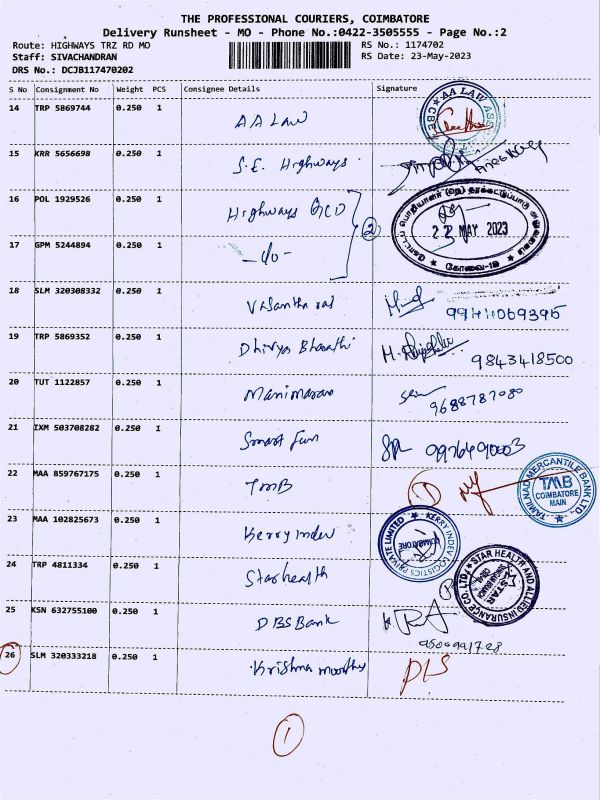 THE PROFESSIONAL COURIERS, COIMBATORE
Delivery Runsheet - MO - Phone No.:0422-3505555 - Page No.:2
Route: HIGHWAYS TRZ RD MO RS No.: 1174702
Staff: SIVACHANDRAN RS Date: 23-May-2023
DRS No.: DCJB117470202
S No Consignment No Weight PCS Consignee Details Signature
14 TRP 5869744 0.250 1 AA Law AA LAW CBE
15 KRR 5656698 0.250 1 S.E. Highways
16 POL 1929526 0.250 1 Highways
2
23 MAY 2023
கோவை-18
17 GPM 5244894 0.250 1 -do-
18 SLM 320308332 0.250 1 Vasantha raj 9944069395
19 TRP 5869352 0.250 1 Dhivya Bharathi 9843418500
20 TUT 1122857 0.250 1 Manimaran 9688787080
21 IXM 503708282 0.250 1 Smart fun 9976490003
22 MAA 859767175 0.250 1 TMB 1 TAMILNAD MERCANTILE BANK LTD TMB COIMBATORE MAIN
23 MAA 102825673 0.250 1 Kerry Indev KERRY INDEV LOGISTICS PRIVATE LIMITED COIMBATORE
24 TRP 4811334 0.250 1 Star health STAR HEALTH AND ALLIED INSURANCE CO.LTD STAR
25 KSN 632755100 0.250 1 DBS Bank
26 SLM 320333218 0.250 1 Krishna moorthy D/S
1